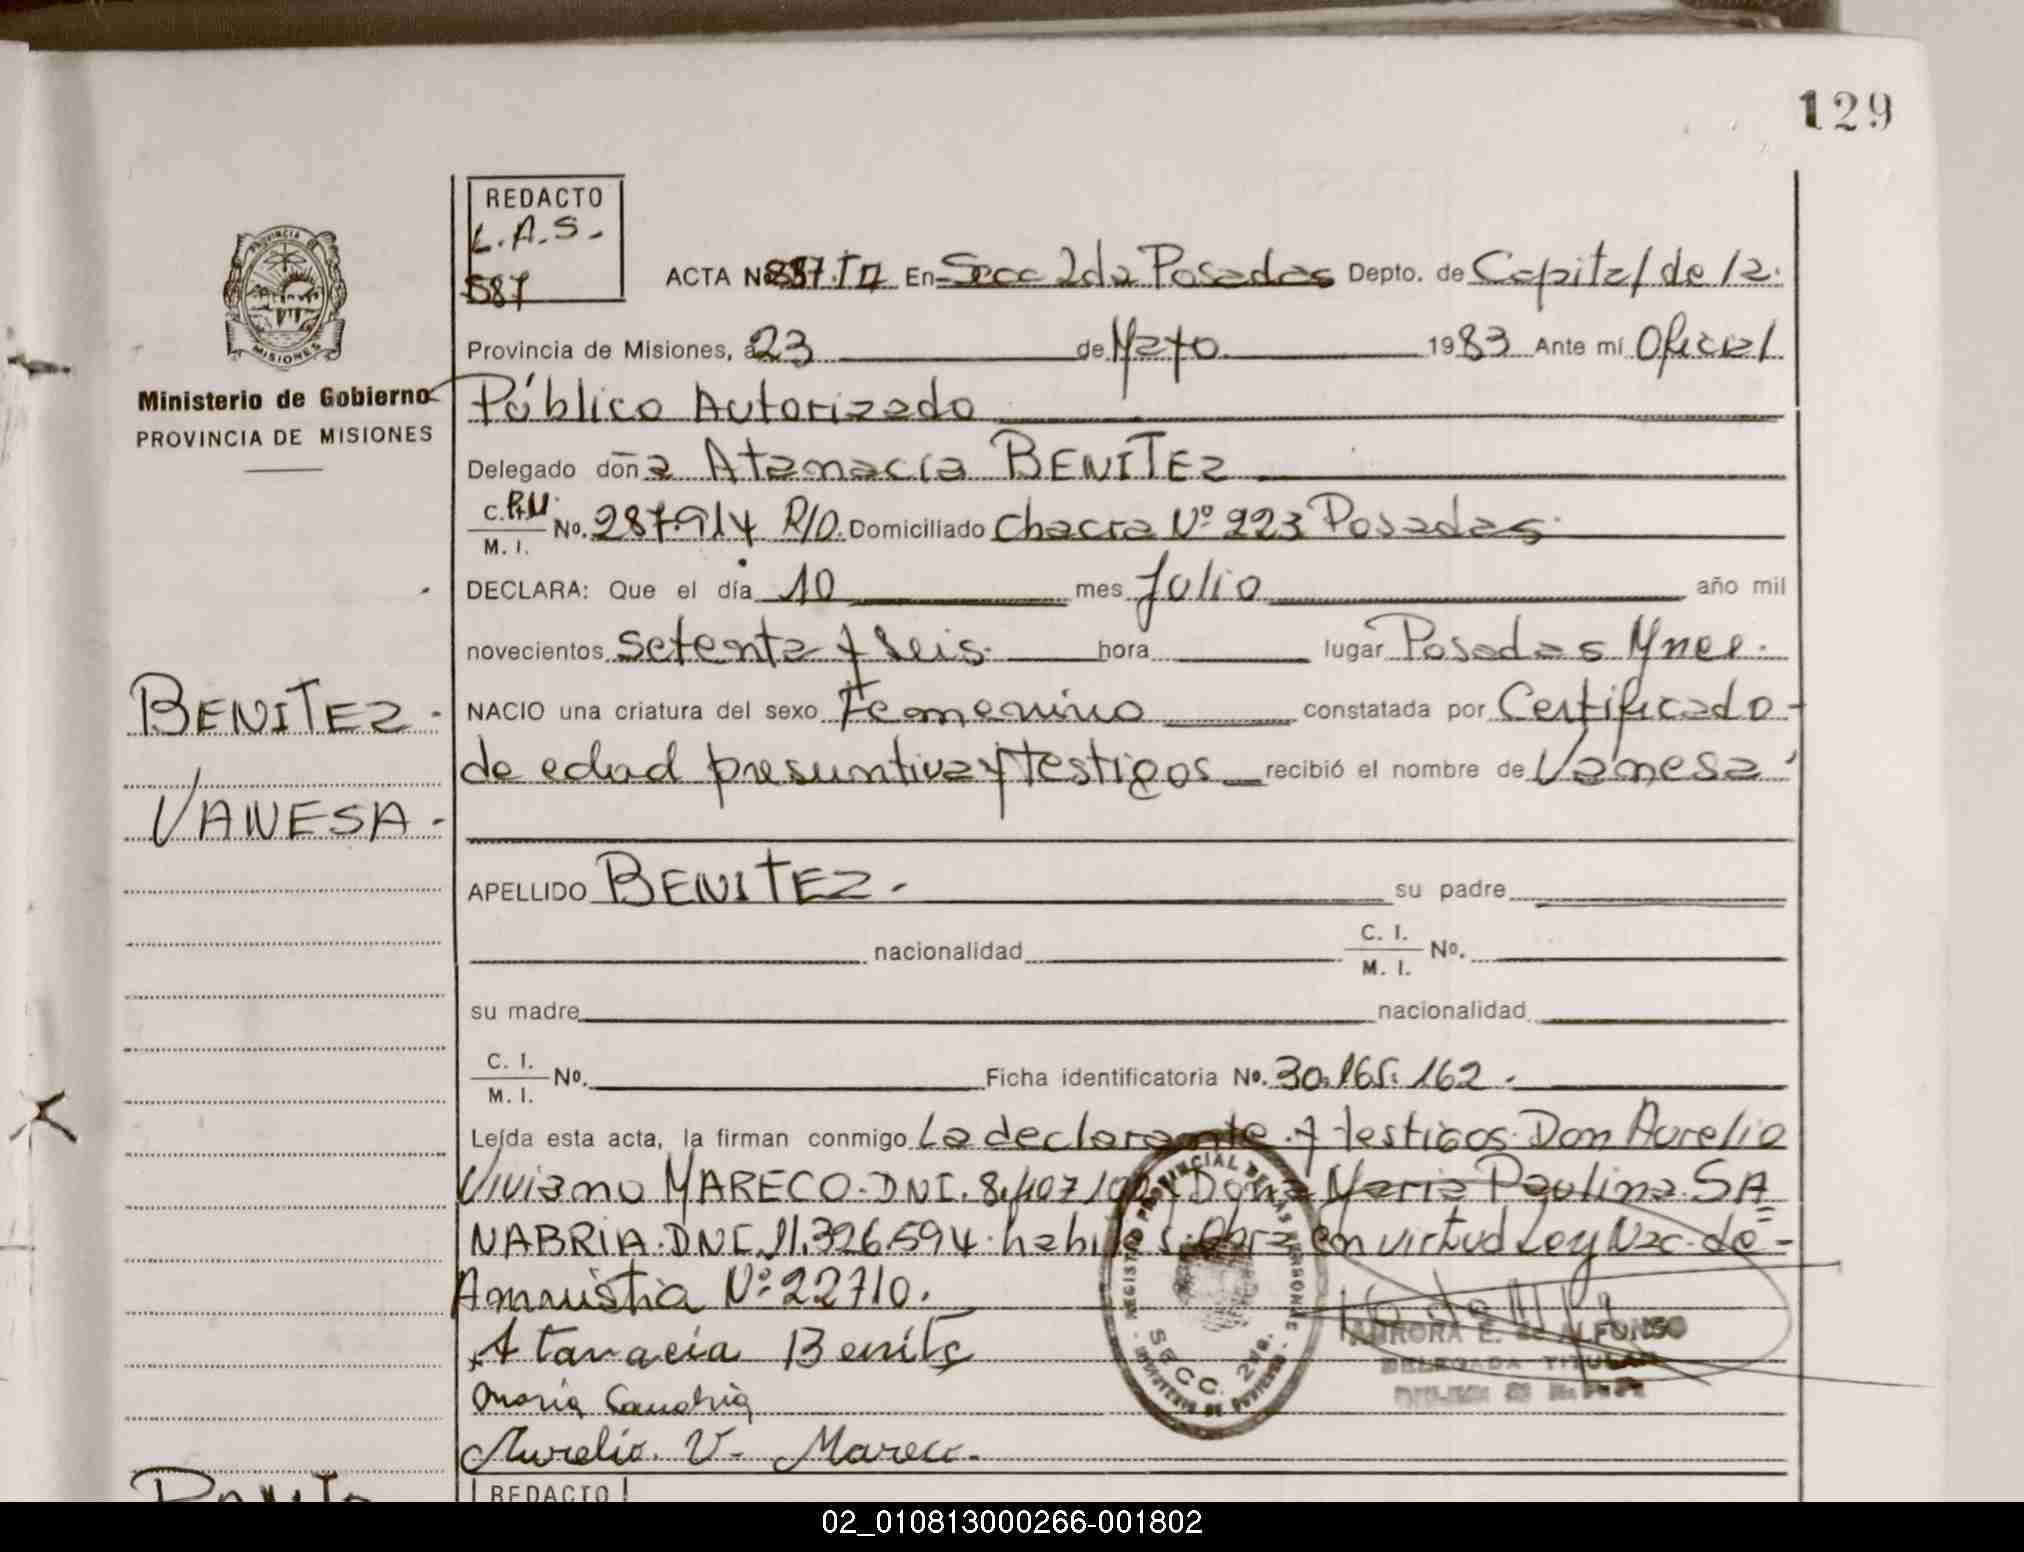 129
REDACTO
L.A.S.-
587
ACTA Nº 587.TII En Secc 2da Posadas Depto. de Capital de la.
Provincia de Misiones, a 23 de Mayo 1983 Ante mí Oficial
Público Autorizado
Delegado doña Atanacia BENITEZ
C.P.N. M. I. No. 287.914 R/D. Domiciliado Chacra Nº 223 Posadas.
DECLARA: Que el día 10 mes Julio año mil
novecientos setenta y seis. hora lugar Posadas Mnes.
NACIO una criatura del sexo Femenino constatada por Certificado
de edad presuntiva y testigos recibió el nombre de Vanesa
APELLIDO BENITEZ.- su padre
nacionalidad C. I. M. I. No.
su madre nacionalidad
C. I. M. I. No. Ficha identificatoria No. 30.165.162.-
Leída esta acta, la firman conmigo La declarante y testigos Don Aurelio
Viviano MARECO.DNI. y Doña Maria Paulina SA
NABRIA.DNI.11.326.594.habiles.Obra en virtud Ley Nac.de-
Amnistia Nº 22710.
Atanacia Benitez
Maria Sanabria
Aurelio. V. Mareco.
REGISTRO PROVINCIAL DE LAS PERSONAS
SECC. 2da.
MINISTERIO DE GOBIERNO
AURORA E. de ALFONSO
DELEGADA TITULAR
PROVINCIA DE MISIONES
Ministerio de Gobierno
PROVINCIA DE MISIONES
BENITEZ.
VANESA.
REDACTO
02_010813000266-001802